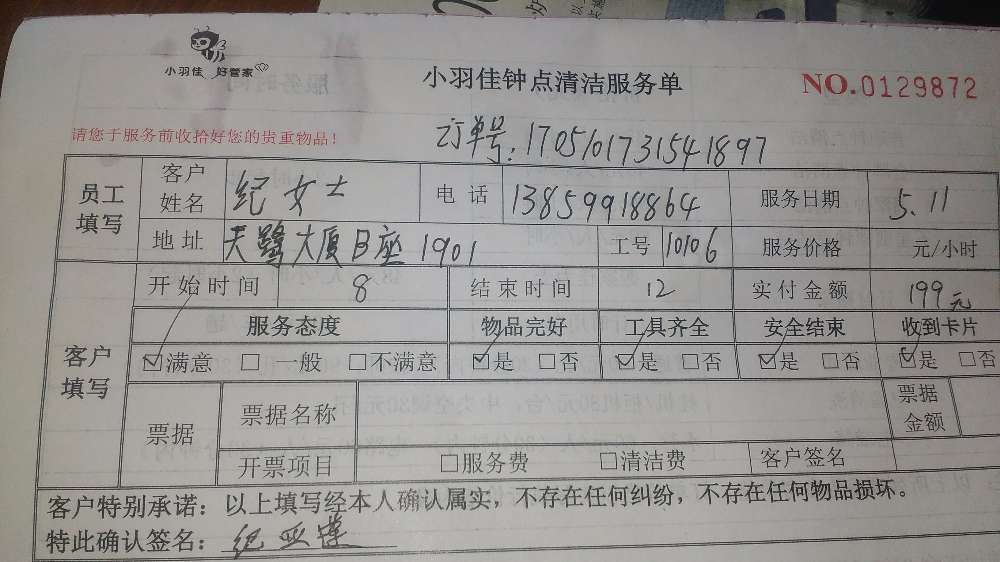 小羽佳 好管家
小羽佳钟点清洁服务单
NO.0129872
请您于服务前收拾好您的贵重物品!
订单号:1705101731541897
员工填写 客户姓名 纪女士 电话 13859918864 服务日期 5.11
地址 天鹭大厦B座1901 工号 10106 服务价格 元/小时
客户填写 开始时间 8 结束时间 12 实付金额 199元
服务态度 物品完好 工具齐全 安全结束 收到卡片
☑满意 □一般 □不满意 ☑是 □否 ☑是 □否 ☑是 □否 ☑是 □否
票据 票据名称 票据金额
开票项目 □服务费 □清洁费 客户签名
客户特别承诺:以上填写经本人确认属实,不存在任何纠纷,不存在任何物品损坏。
特此确认签名:纪亚